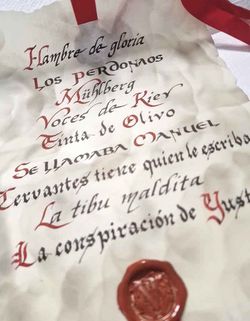 Hambre de gloria
Los perdonaos
Mühlberg
Voces de Rley
Tinta de Olivo
Se llamaba Manuel
Cervantes tiene quien le escriba
La tibu maldita
La conspiración de Yust